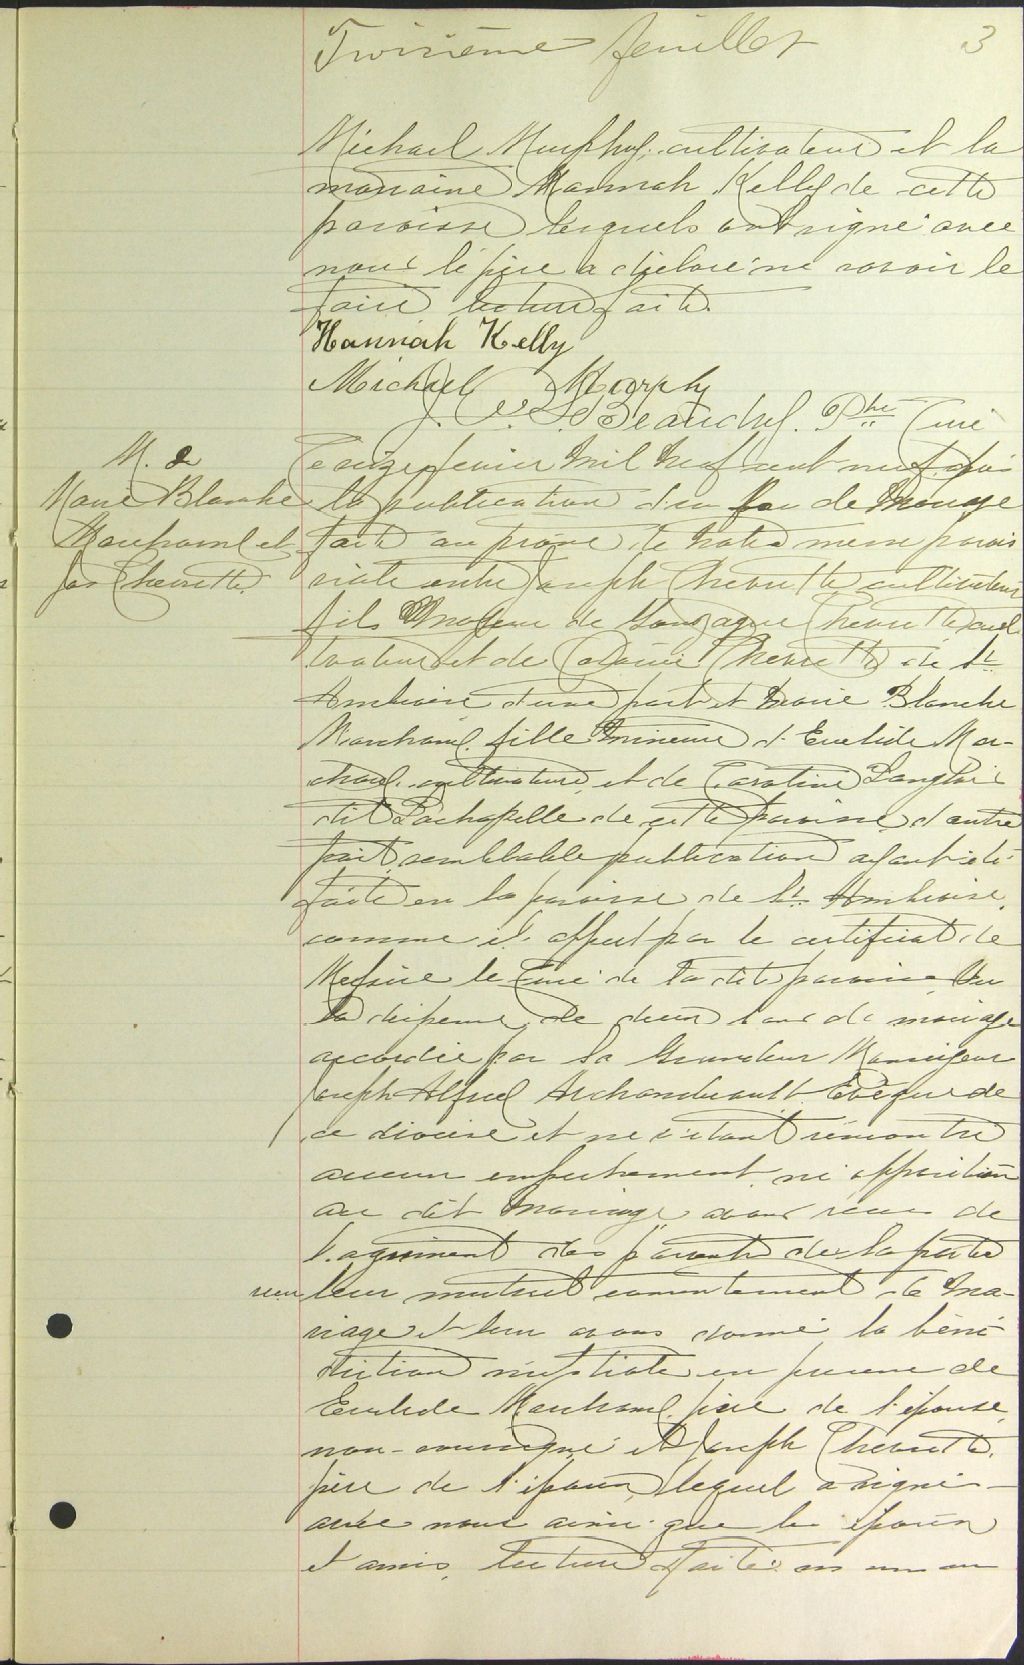 Troisième feuillet 3
Michael Murphy, cultivateur et la
marraine Hannah Kelly de cette
paroisse lesquels ont signé avec
nous le père a déclaré ne savoir le
faire lecture faite.
Hannah Kelly
Michael Murphy
J. Beauchd. Ptre Curé
M. 2
Marie Blanche
Marchand et
Jos Chevrette.
Le onze fevrier mil neuf cent neuf
la publication d'un ban de mariage
faite au prône de notre messe parois
siale entre Joseph Chevrette cultivateur
fils majeur de Gonzague Chevrette cul
tivateur et de Chevrette de St
Ambroise d'une part et Marie Blanche
Marchand fille mineure d'Euclide Mar-
chand, cultivateur, et de Caroline Langlois
dit Lachapelle de cette paroisse d'autre
part, semblable publication ayant été
faite en la paroisse de St Ambroise,
comme il appert par le certificat de
Messire le Curé de la dite paroisse Vu
la dispense de deux bans de mariage
accordée par Sa Grandeur Monseigneur
Joseph Alfred Archambeault Evêque de
ce diocèse et ne s'étant rencontré
aucun empêchement ni opposition
au dit mariage avons de
l'agrément des parents de la partie
leur mutuel consentement de ma-
riage et leur avons donné la béné
diction nuptiale en presence de
Euclide Marchand père de l'épouse
non-soussigné et Joseph Chevrette
père de l'époux, lequel a signé
avec nous ainsi que les époux
et amis, lecture faite.